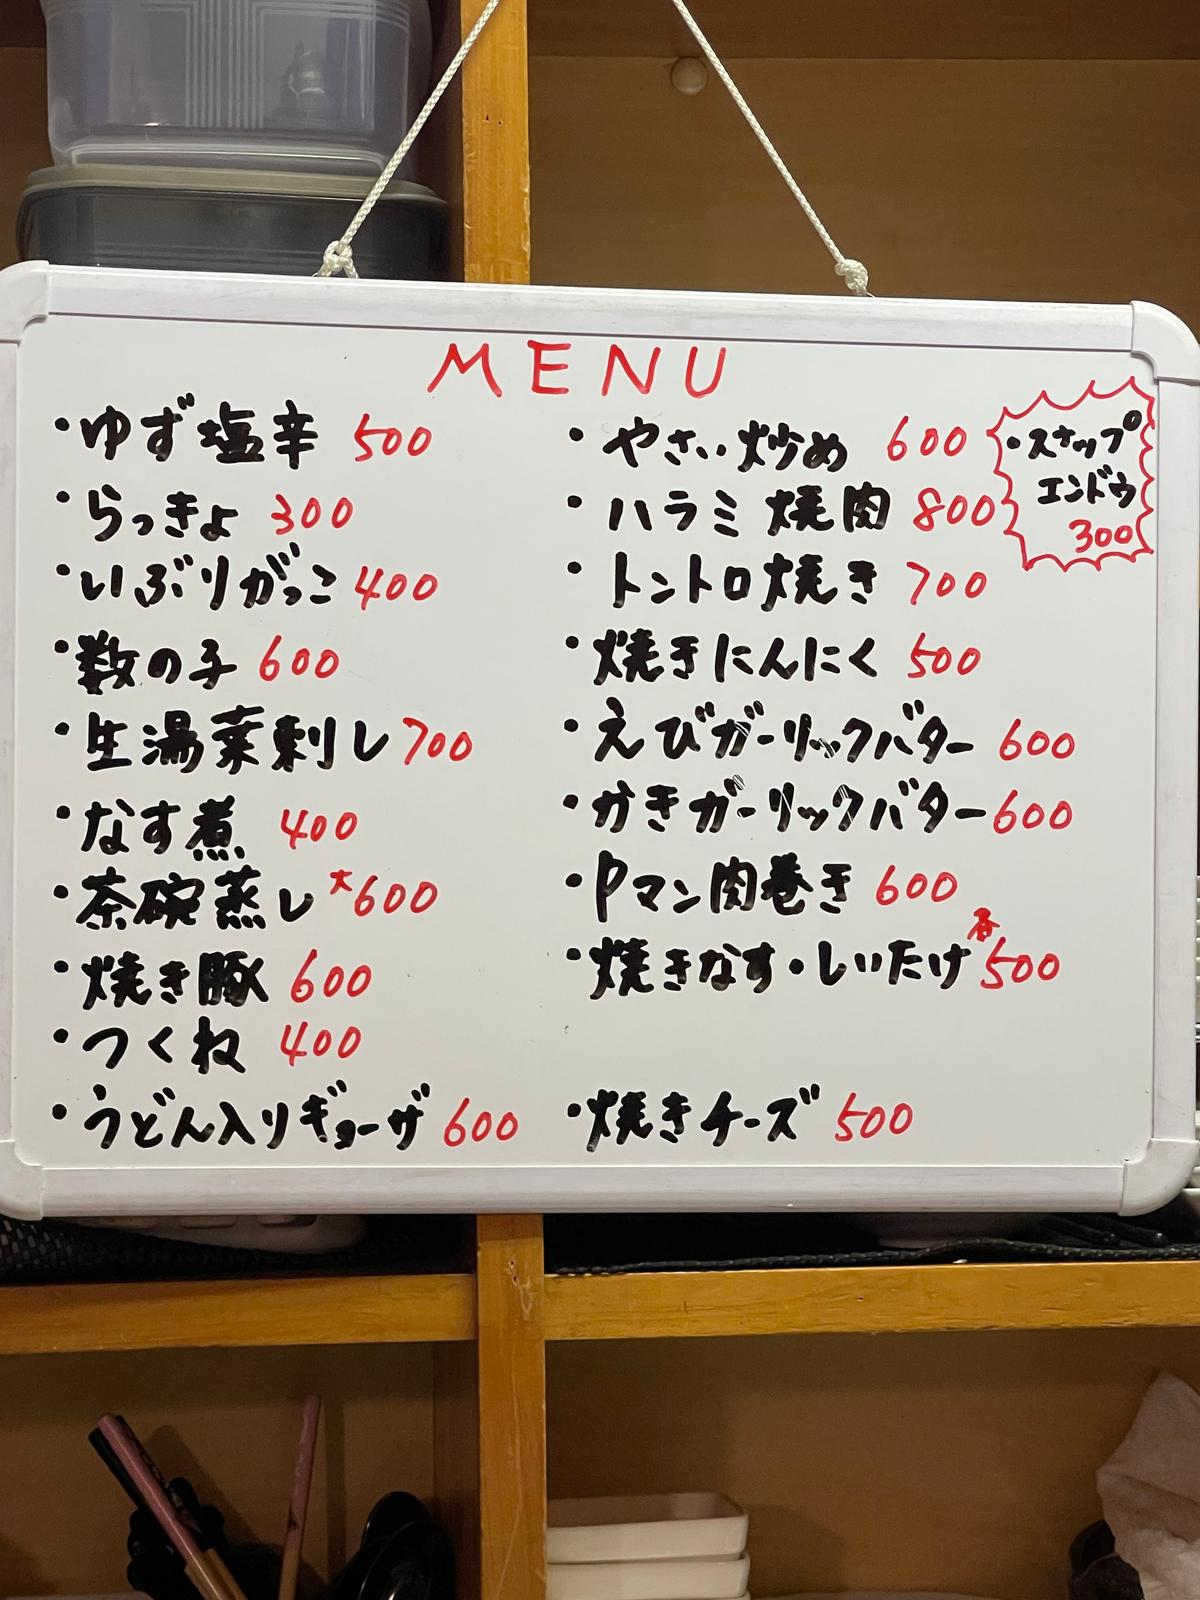 MENU
・ゆず塩辛 500
・らっきょ 300
・いぶりがっこ 400
・数の子 600
・生湯葉刺し 700
・なす煮 400
・茶碗蒸し 大600
・焼き豚 600
・つくね 400
・うどん入りギョーザ 600
・やさい炒め 600
・ハラミ焼肉 800
・トントロ焼き 700
・焼きにんにく 500
・えびガーリックバター 600
・かきガーリックバター 600
・Pマン肉巻き 600
・焼きなす・しいたけ 各500
・焼きチーズ 500
・スナップ
エンドウ
300